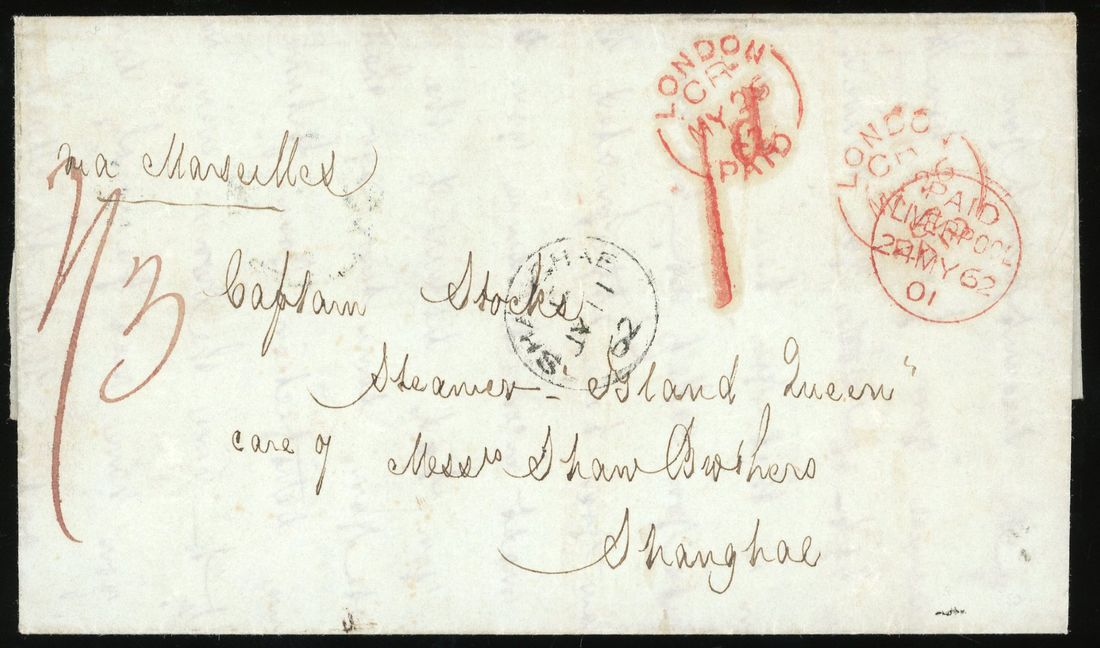 LONDON
CR
MY 26
PAID
1d
LONDON
CR
PAID
LIVERPOOL
MY 62
01
via Marseilles
1/3
SHANGHAE
11
62
Captain Stocks
Steamer - "Island Queen"
care of Messrs Shaw Brothers
Shanghae